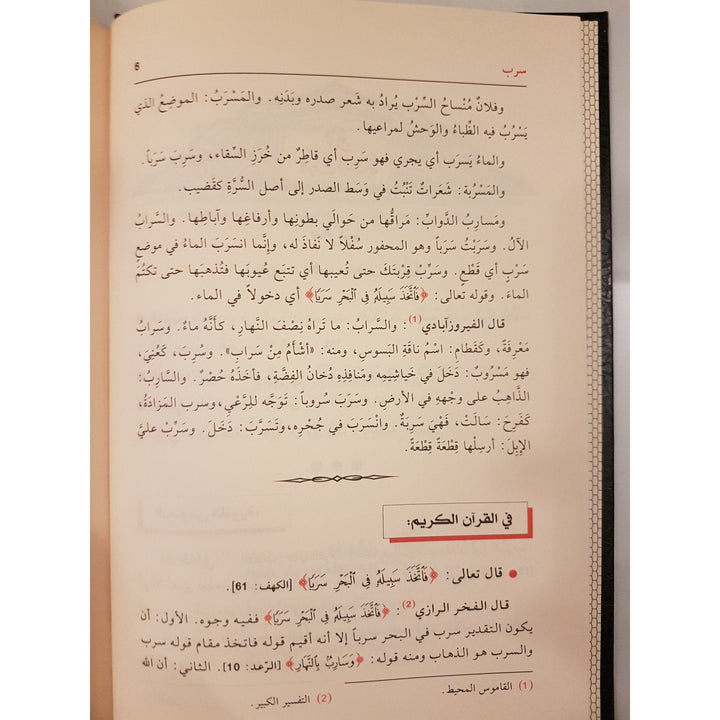 سرب
6
وفلانٌ مُنْساحُ السِّرْب يُرادُ به شَعر صدره وبَدَنِه. والمَسْرَبُ: الموضِعُ الذي
يَسْرُبُ فيه الظِّباءُ والوَحشُ لمراعيها.
والماءُ يَسرَب أي يجري فهو سَرِب أي قاطِرٌ من خُرَزِ السِّقاء، وسَرِبَ سَرَباً.
والمَسْرُبة: شَعَراتٌ تَنْبُتُ في وَسَط الصدر إلى أصل السُّرَّةِ كقَضيب.
ومَسارِبُ الدَّوابِّ: مَراقُّها من حَوالَي بطونِها وأرفاغِها وآباطِها. والسَّرابُ
الآلُ. وسَرَبْتُ سَرَباً وهو المحفور سُفْلاً لا نَفاذَ له، وإنَّما انسَرَبَ الماءُ في موضعٍ
سَرْبٍ أي قَطْعٍ. وسَرِّبْ قِرْبتَك حتى تُعيبها أي تتبَع عُيوبَها فتُذهِبَها حتى تكتُمَ
الماءَ. وقوله تعالى: ﴿فَٱتَّخَذَ سَبِيلَهُۥ فِى ٱلْبَحْرِ سَرَبًا﴾ أي دخولاً في الماء.
قال الفيروزآبادي(1): والسَّرابُ: ما تَراهُ نِصْفَ النَّهارِ، كأنَّهُ ماءٌ. وسَرابُ
مَعْرِفَةً، وكَقَطامِ: اسْمُ ناقَةِ البَسوسِ، ومنه: «أشْأَمُ مِنْ سَرابِ». وسُرِبَ، كَعُنِيَ،
فهو مَسْرُوبٌ: دَخَلَ في خَياشِيمِه ومَنافِذِهِ دُخانُ الفِضَّةِ، فأخَذَهُ حُصْرٌ. والسَّارِبُ:
الذَّاهِبُ على وجْهِهِ في الأرضِ. وسَرَبَ سُروباً: تَوَجَّه للرَّعْيِ، وسرب المَزادَةُ،
كَفَرِحَ: سَالَتْ، فَهْيَ سَرِبَةٌ. وانْسَرَبَ في جُحْرِه، وتَسَرَّبَ: دَخَلَ. وسَرِّبْ عليَّ
الإِبِلَ: أرسِلْها قِطْعَةً قِطْعَةً.
في القرآن الكريم:
● قال تعالى: ﴿فَٱتَّخَذَ سَبِيلَهُۥ فِى ٱلْبَحْرِ سَرَبًا﴾ [الكهف: 61].
قال الفخر الرازي(2): ﴿فَٱتَّخَذَ سَبِيلَهُۥ فِى ٱلْبَحْرِ سَرَبًا﴾ ففيه وجوه. الأول: أن
يكون التقدير سرب في البحر سرباً إلا أنه أقيم قوله فاتخذ مقام قوله سرب
والسرب هو الذهاب ومنه قوله: ﴿وَسَارِبٌۢ بِٱلنَّهَارِ﴾ [الرّعد: 10]. الثاني: أن الله
(1) القاموس المحيط. (2) التفسير الكبير.